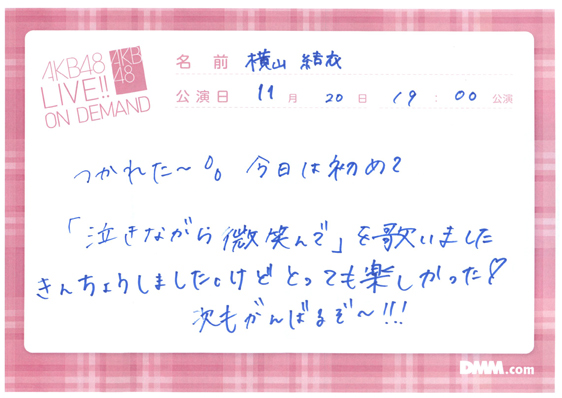 AKB48
LIVE!!
ON DEMAND
AKB
48
名前 横山 結衣
公演日 11月 20日 19:00 公演
つかれた〜。。今日は初めて
「泣きながら微笑んで」を歌いました
きんちょうしました。けどとっても楽しかった♡
次もがんばるぞ〜!!!
DMM.com